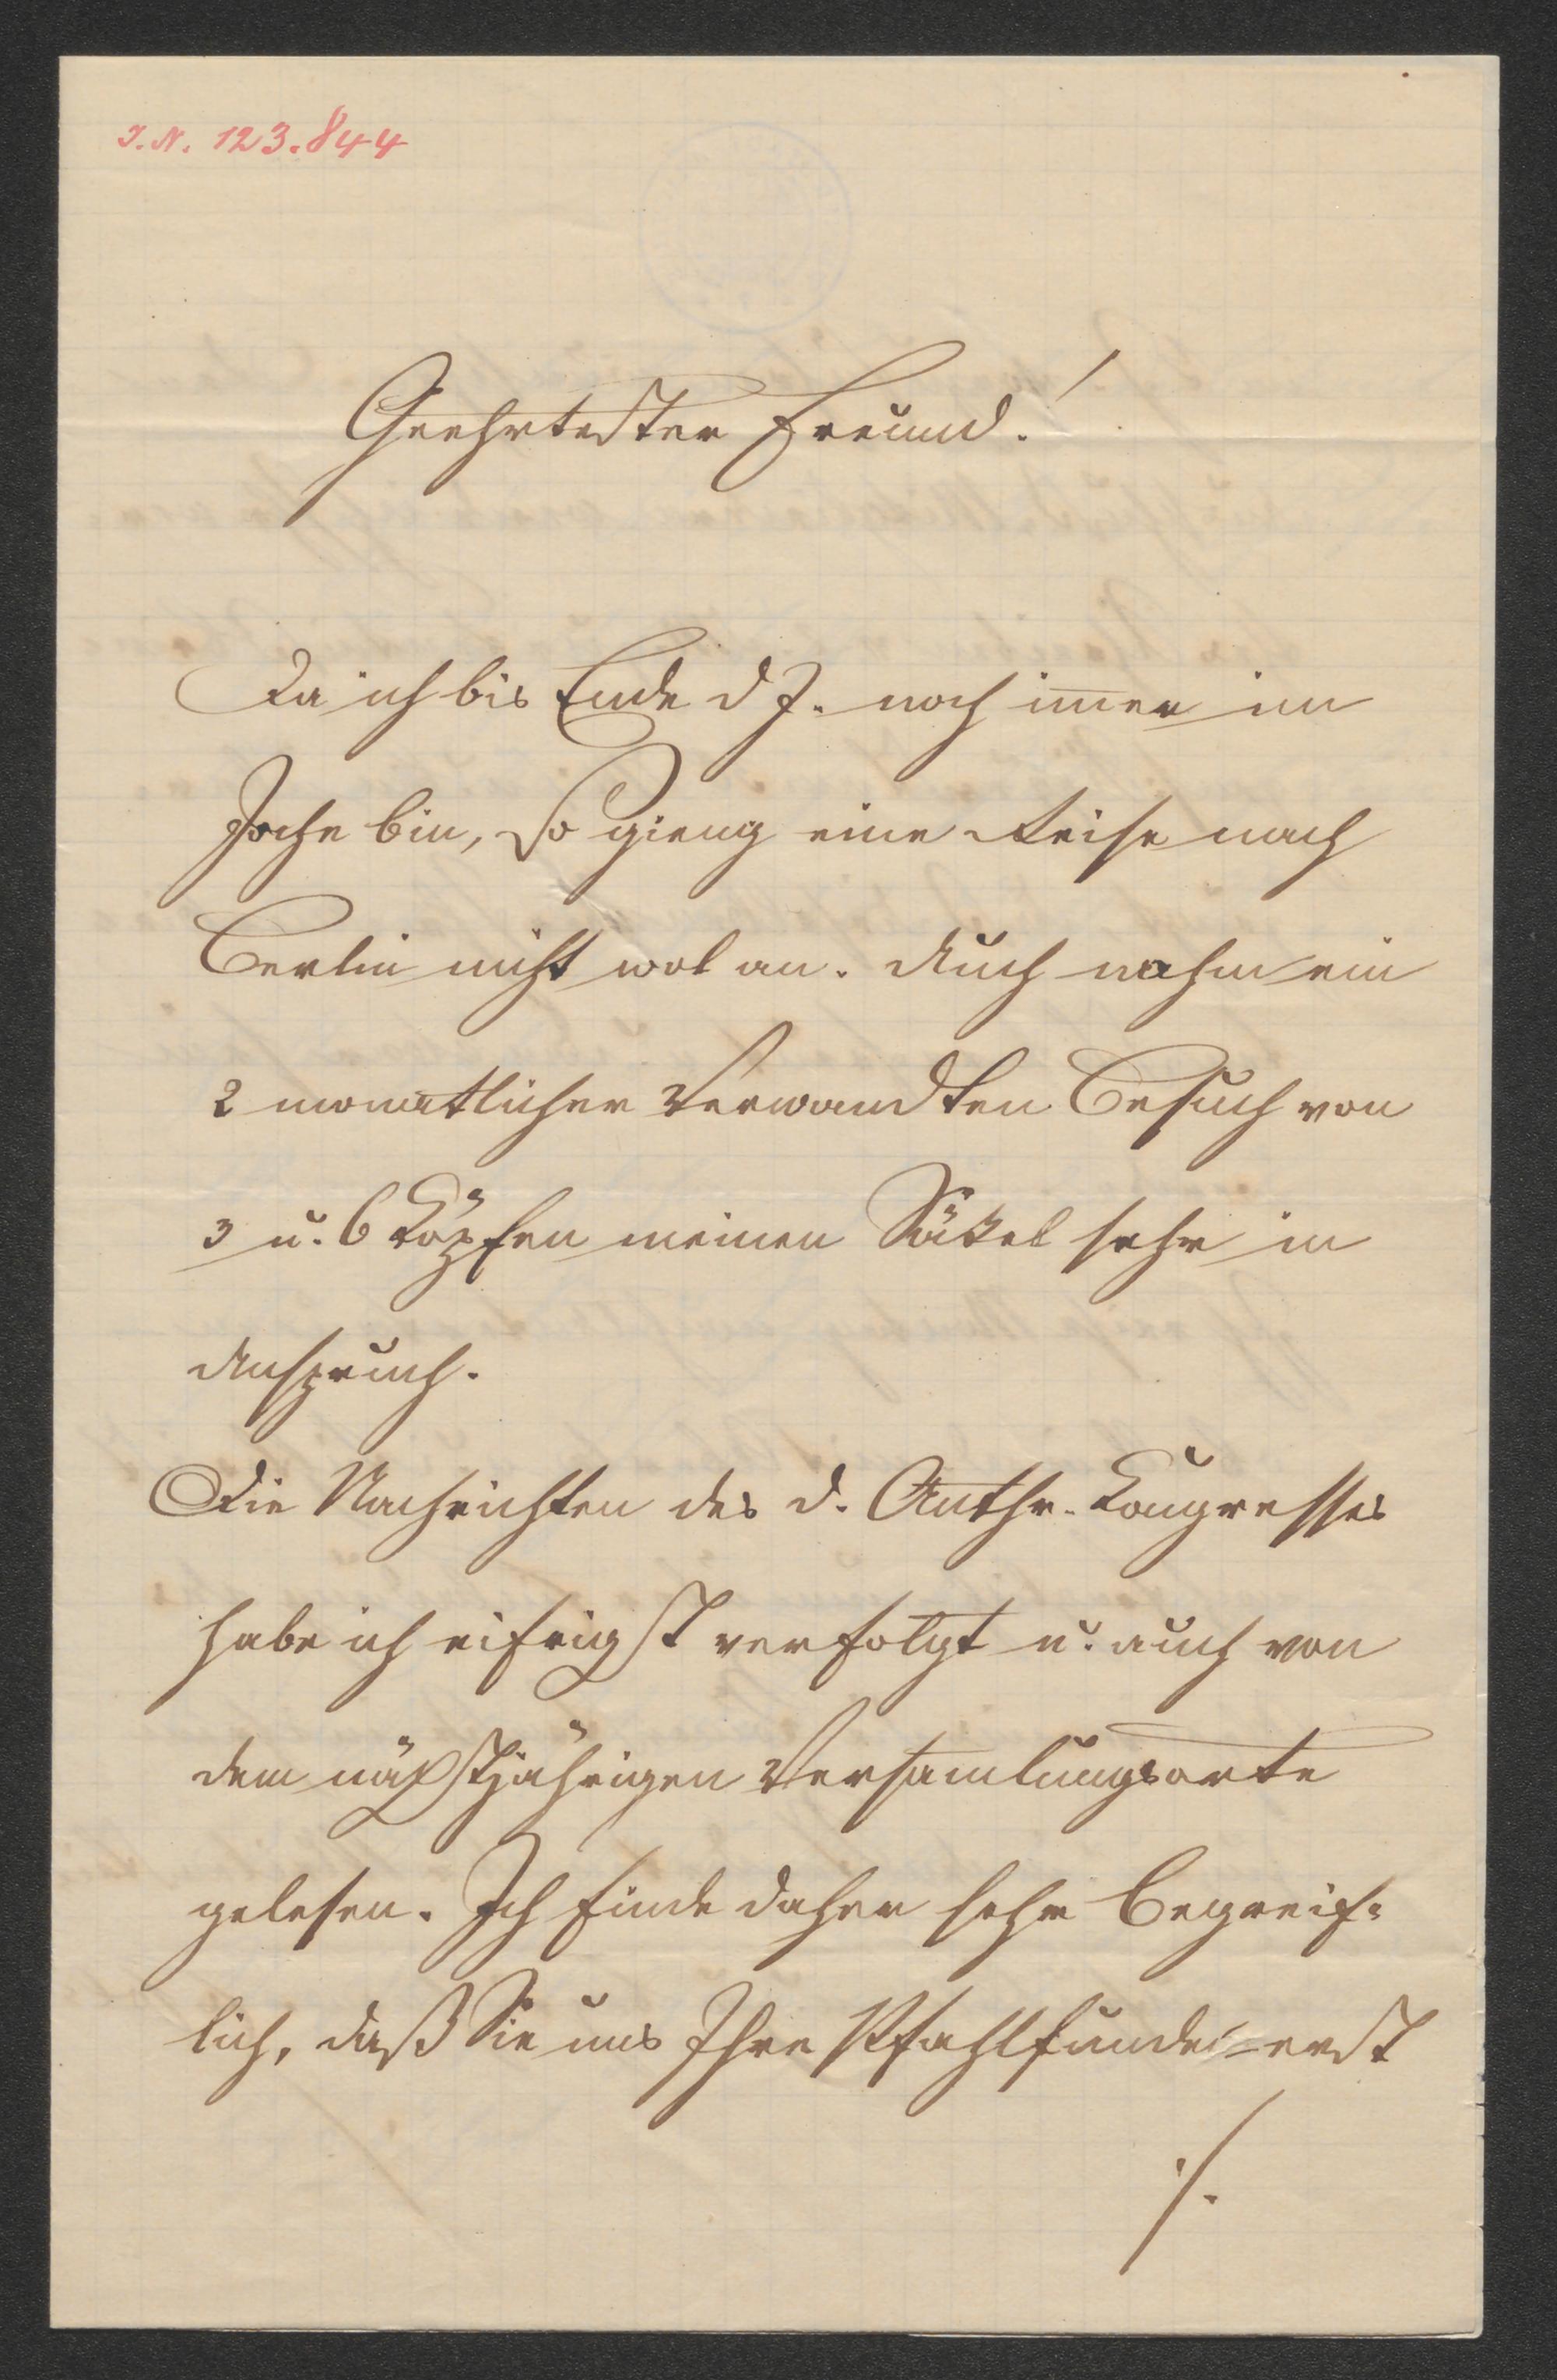 I.N. 123.844
Geehrtester Freund!
Da ich bis Ende d J. noch im̅er im
Joche bin, so gieng eine Reise nach
Berlin nicht wol an. Auch nahm ein
2 monatlicher Verwandten Besuch von
3 u. 6 Köpfen meinen Säkel sehr in
Anspruch.
Die Nachrichten des d. Anthr. Kongresses
habe ich eifrigst verfolgt u. auch von
dem nächstjährigen Versam̅lungsorte
gelesen. Ich finde daher sehr begreif=
lich, daß Sie uns Ihre Pfahlfunde erst
./.